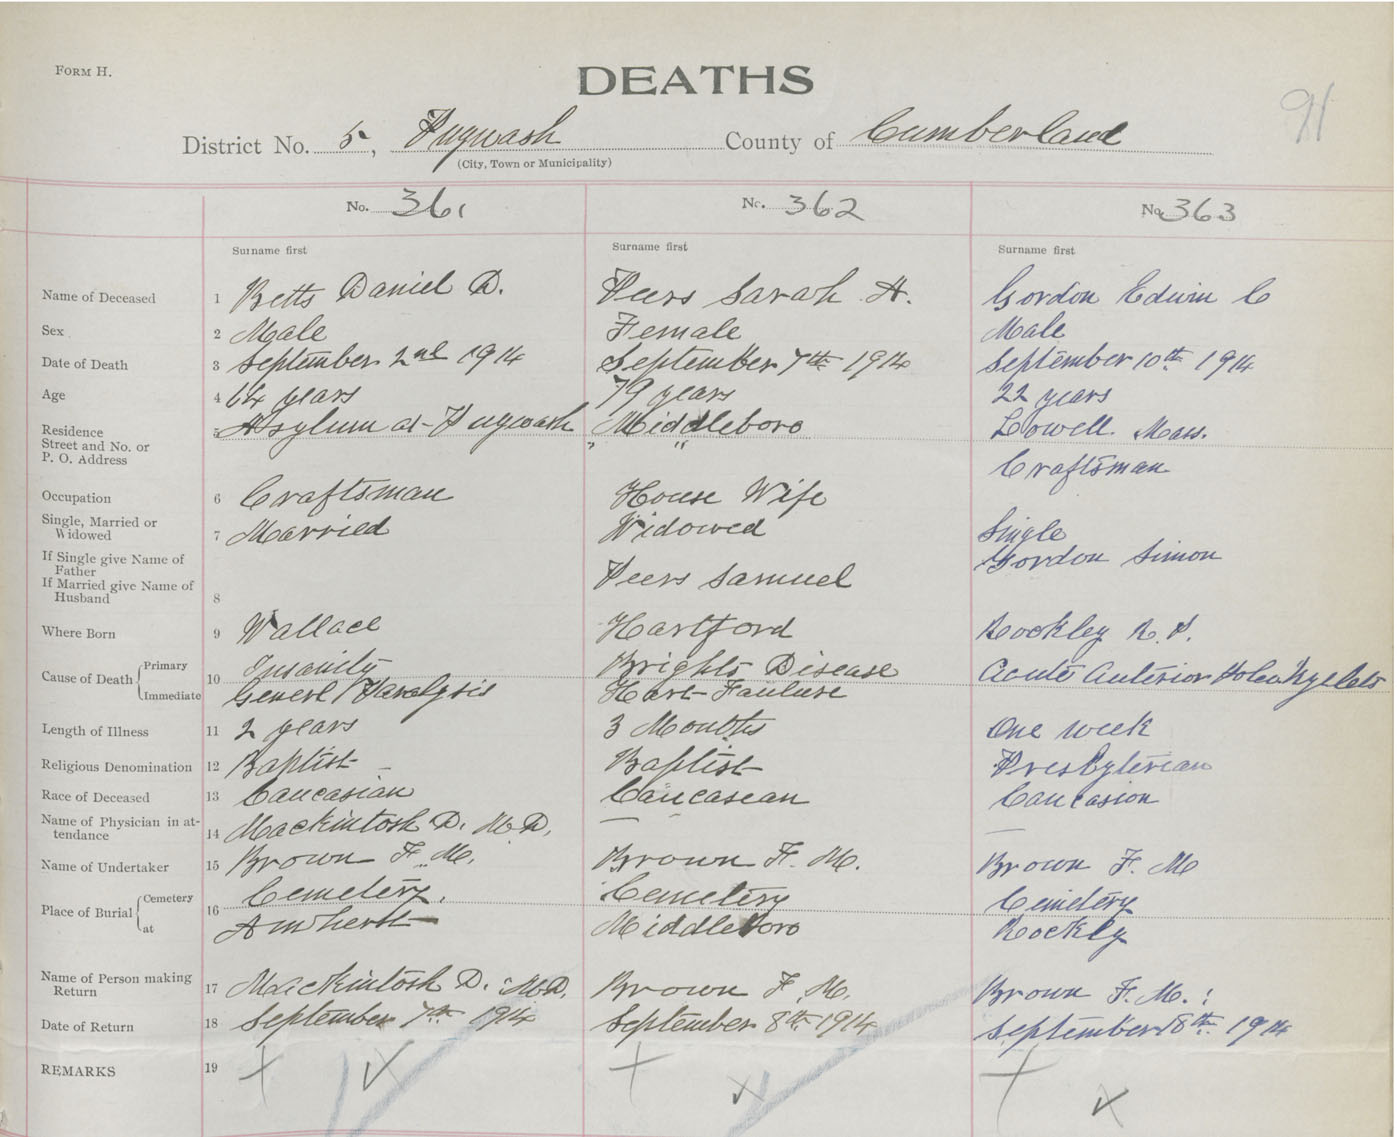 FORM H.
DEATHS
91
District No. 5, Pugwash County of Cumberland
(City, Town or Municipality)
No. 361 No. 362 No. 363
Surname first Surname first Surname first
Name of Deceased 1 Betts Daniel D. Peers Sarah A. Gordon Edwin C
Sex 2 Male Female Male
Date of Death 3 September 2nd 1914 September 7th 1914 September 10th 1914
Age 4 64 years 79 years 22 years
Residence 5 Asylum at Pugwash Middleboro Lowell Mass.
Street and No. or " "
P. O. Address Craftsman
Occupation 6 Craftsman House Wife
Single, Married or
Widowed 7 Married Widowed Single
If Single give Name of
Father Gordon Simon
If Married give Name of Peers Samuel
Husband 8
Where Born 9 Wallace Hartford Rockley
Cause of Death Primary 10 Insanity Brights Disease Acute Anterior
Immediate Generl Paralysis Hart Failure
Length of Illness 11 2 years 3 Months One week
Religious Denomination 12 Baptist Baptist Presbyterian
Race of Deceased 13 Caucasian Caucasean Caucasion
Name of Physician in at-
tendance 14 Mackintosh D. M.D. — —
Name of Undertaker 15 Brown F. M. Brown F. M. Brown F. M
Place of Burial Cemetery 16 Cemetery. Cemetery Cemetery
at Amherst Middleboro Rockly
Name of Person making
Return 17 Mackintosh D. M.D. Brown F. M. Brown F. M.
Date of Return 18 September 7th 1914 September 8th 1914 September 18th 1914
REMARKS 19